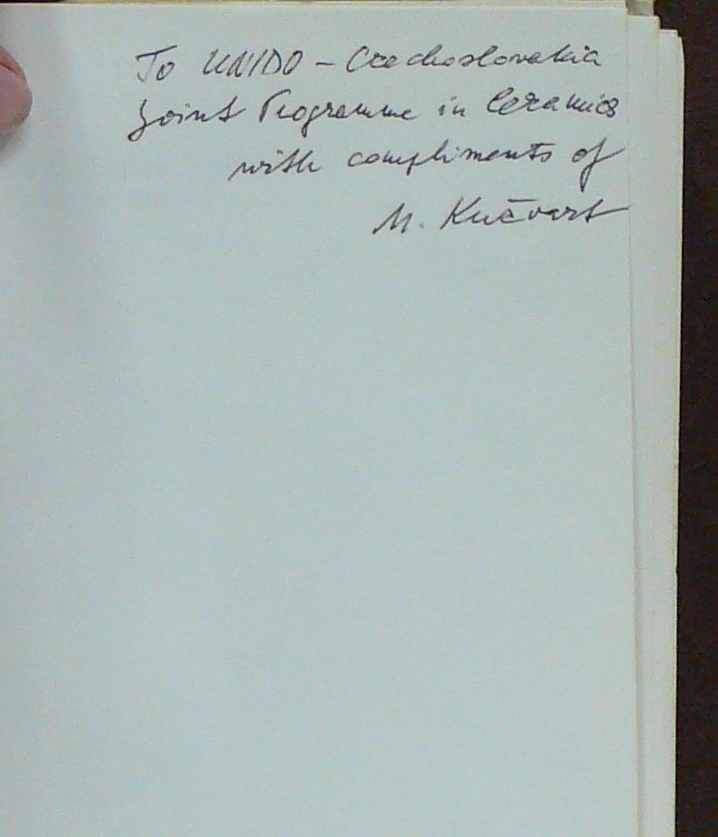 To UNIDO - Czechoslovakia
Joint Programme in Ceramics
with compliments of
M. Kužvart